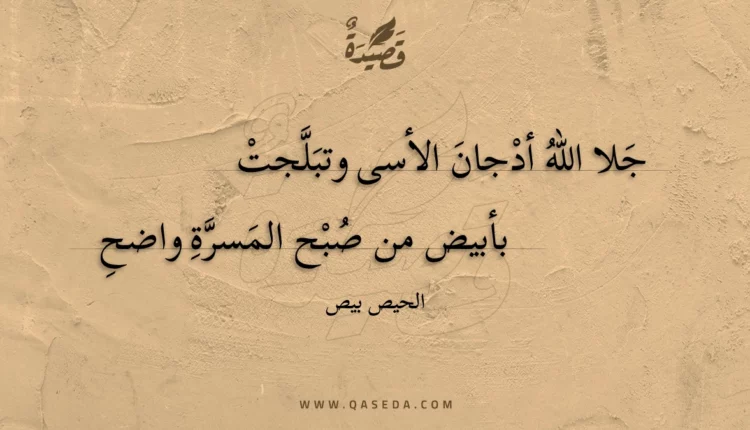 قَصِيْدَةٌ
جَلا اللهُ أدْجانَ الأسى وتبَلَّجتْ
بأبيض من صُبْح المَسرَّةِ واضحِ
الحيص بيص
WWW.QASEDA.COM